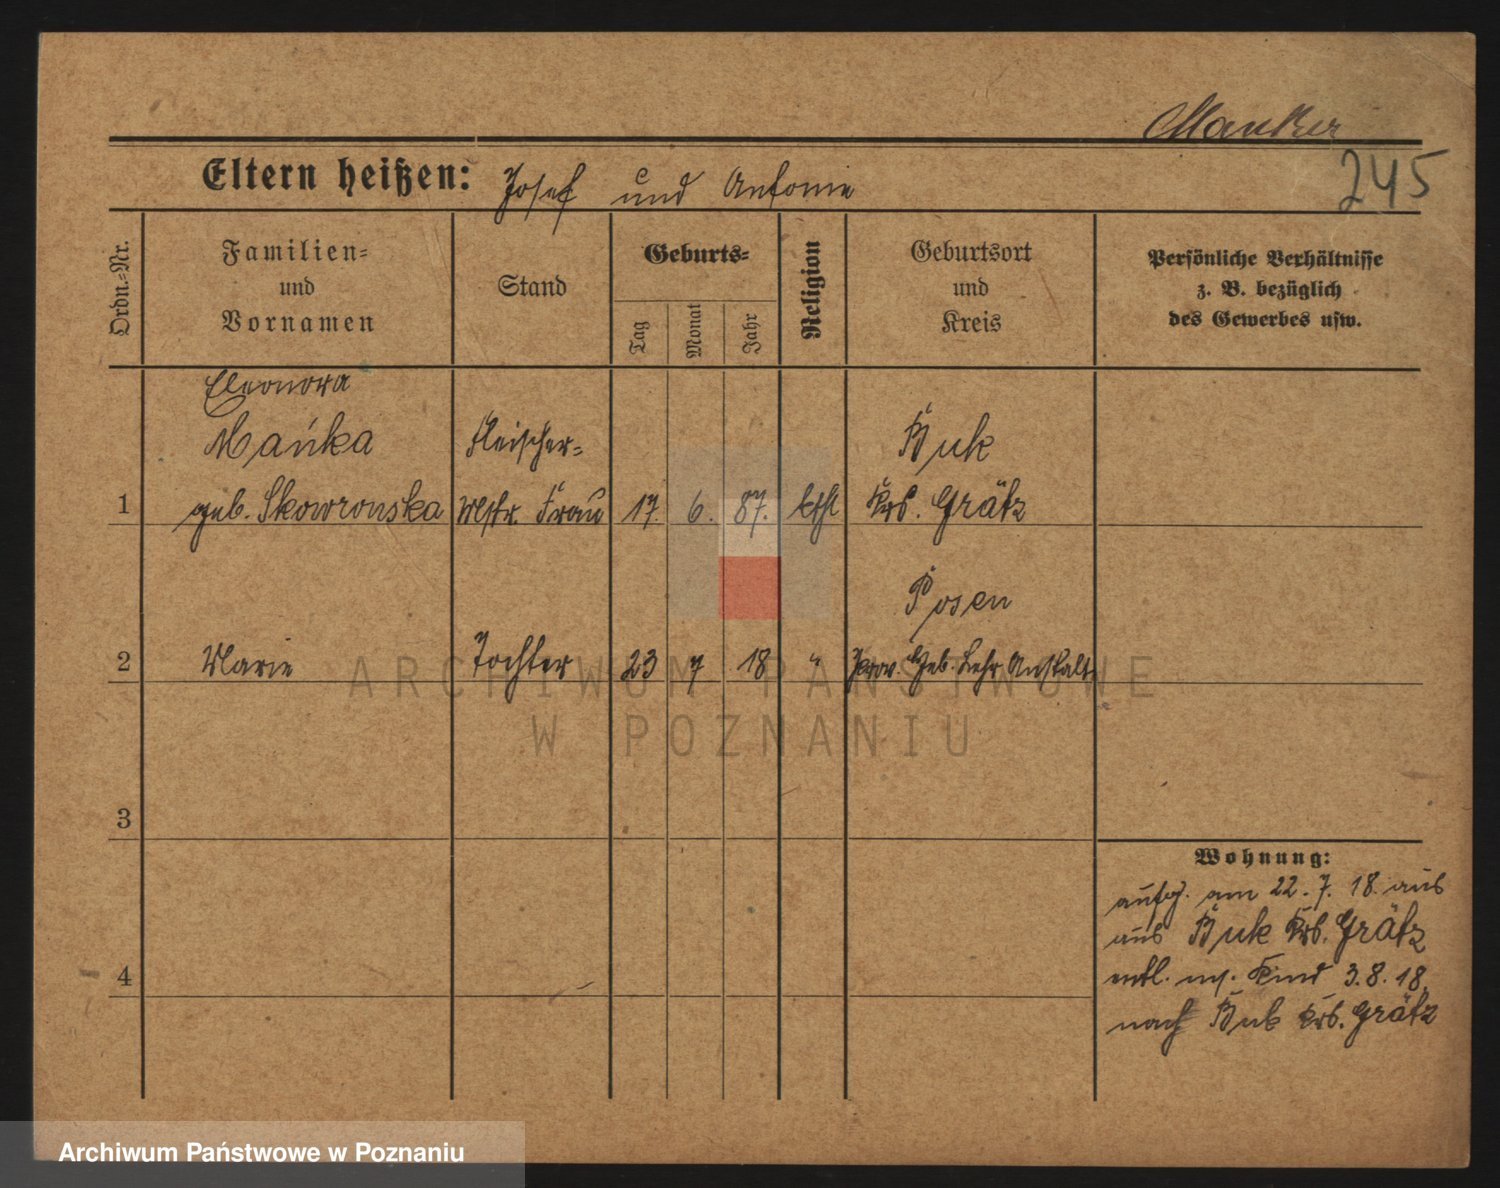 245
Eltern heißen: Josef und Antonie
Ordn.-Nr.
Familien-
und
Vornamen
Stand
Geburts-
Tag
Monat
Jahr
Religion
Geburtsort
und
Kreis
Persönliche Verhältnisse
z. B. bezüglich
des Gewerbes usw.
Eleonora
Mańka Fleischer- Buk
1 geb. Skowronska Mstr. Frau 17. 6. 87. kthl Krs. Grätz
Posen
2 Marie Tochter 23 7 18 " Prov. Heb. Lehr Anstalt
3
Wohnung:
aufg. am 22. 7. 18. aus
aus Buk Krs. Grätz
4 entl. m. Kind 3. 8. 18.
nach Buk Krs. Grätz
ARCHIWUM PAŃSTWOWE
W POZNANIU
Archiwum Państwowe w Poznaniu